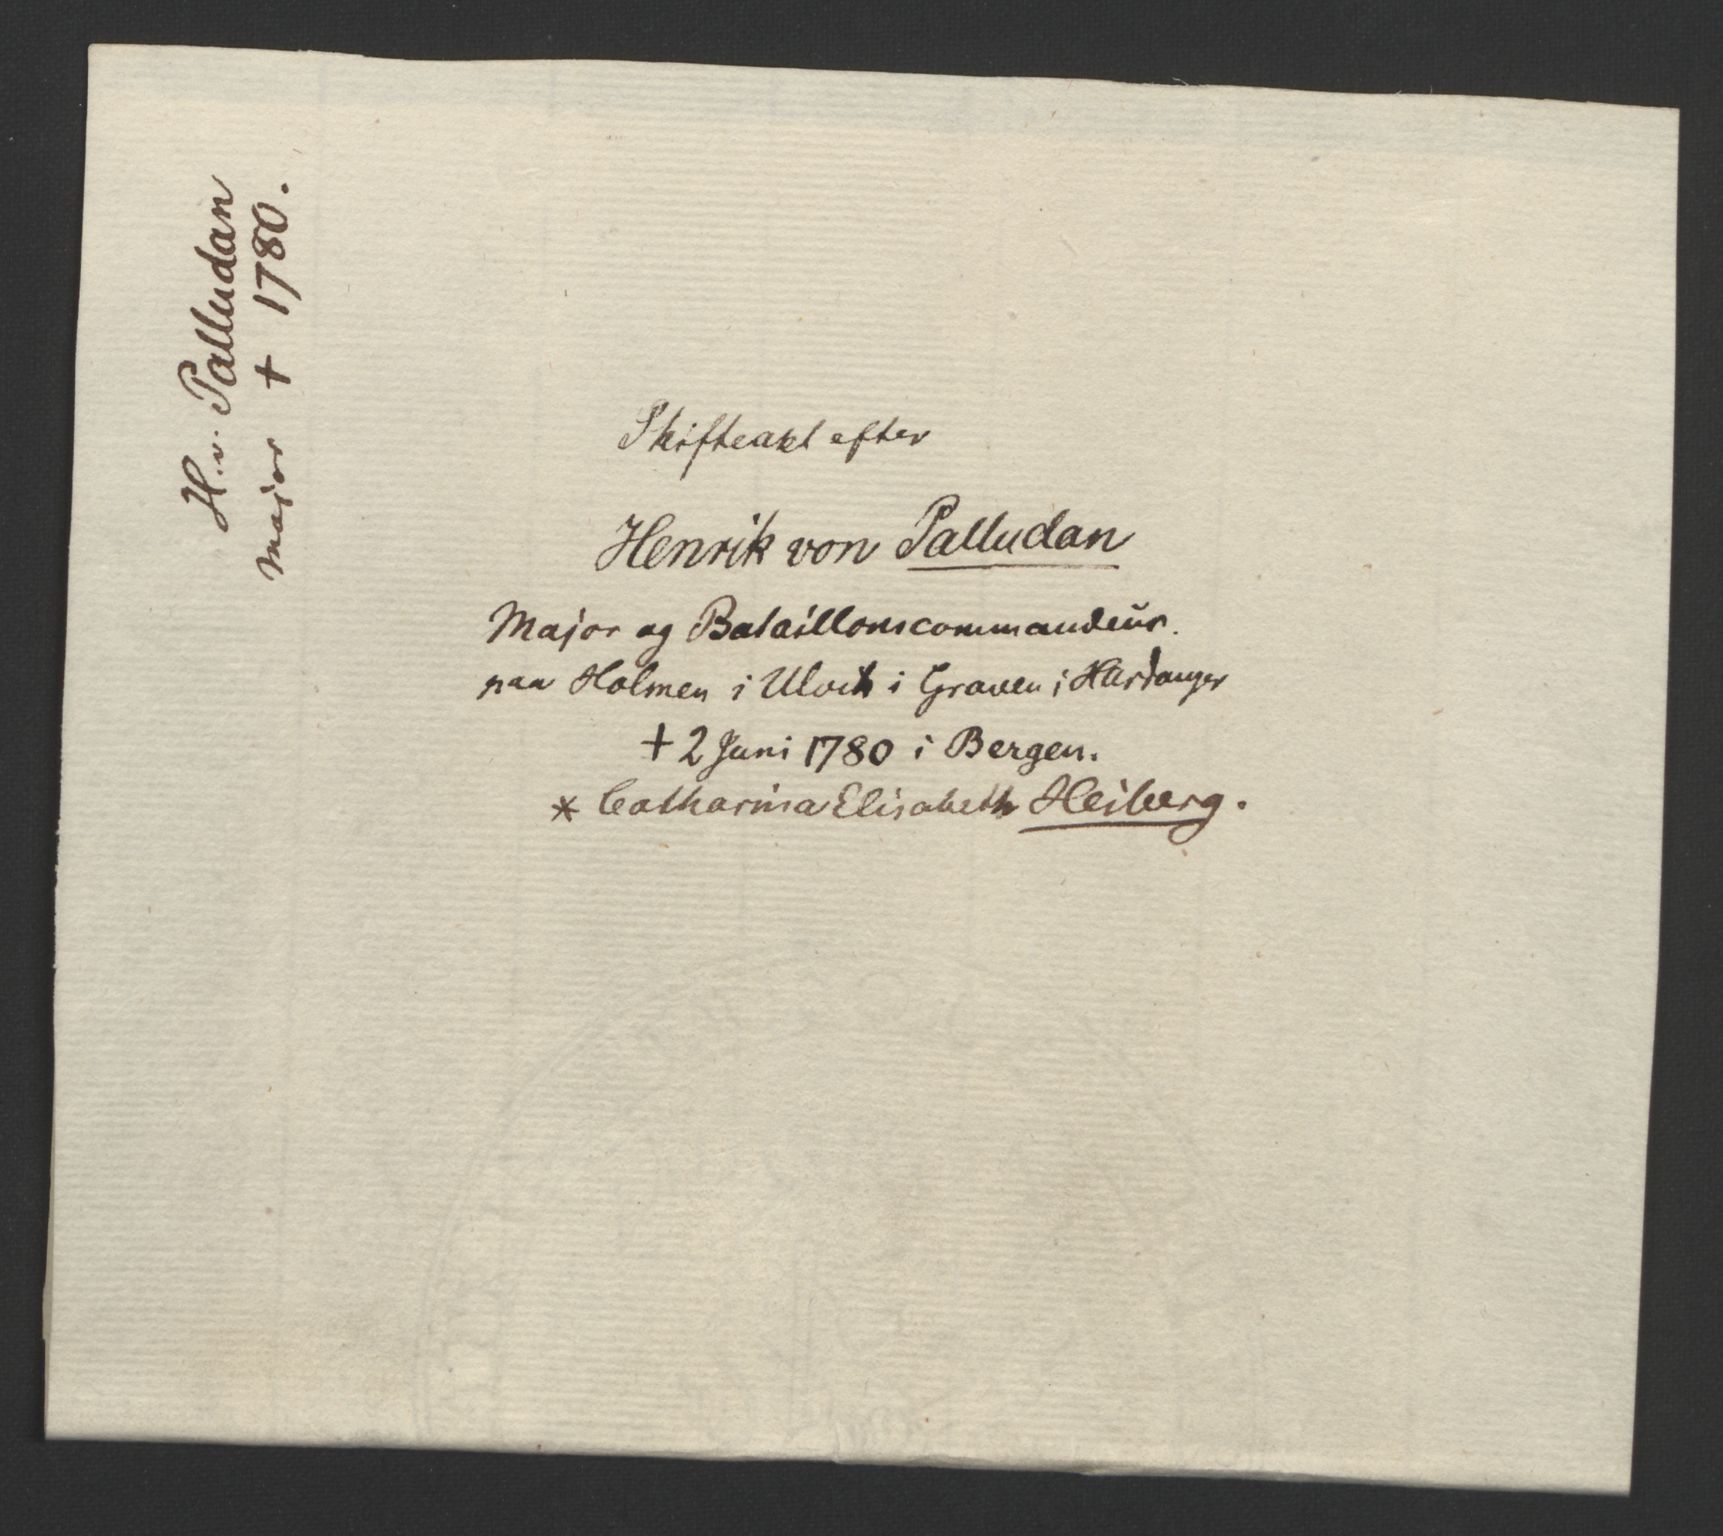 H. v. Palludan
Major + 1780.
Skifteakt efter
Henrik von Palludan
Major og Bataillonscommandeur.
paa Holmen i Ulvik i Graven i Hardanger
+ 2 Juni 1780 i Bergen.
* Catharina Elisabeth Heiberg.